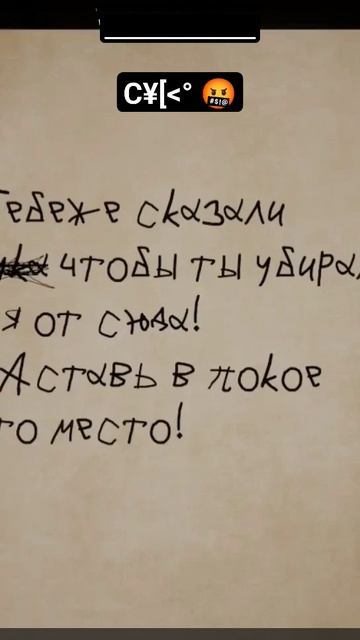 С¥[<° 🤬
Тебеже сказали
чтобы ты убирал
я от сюда!
Аставь в покое
то место!